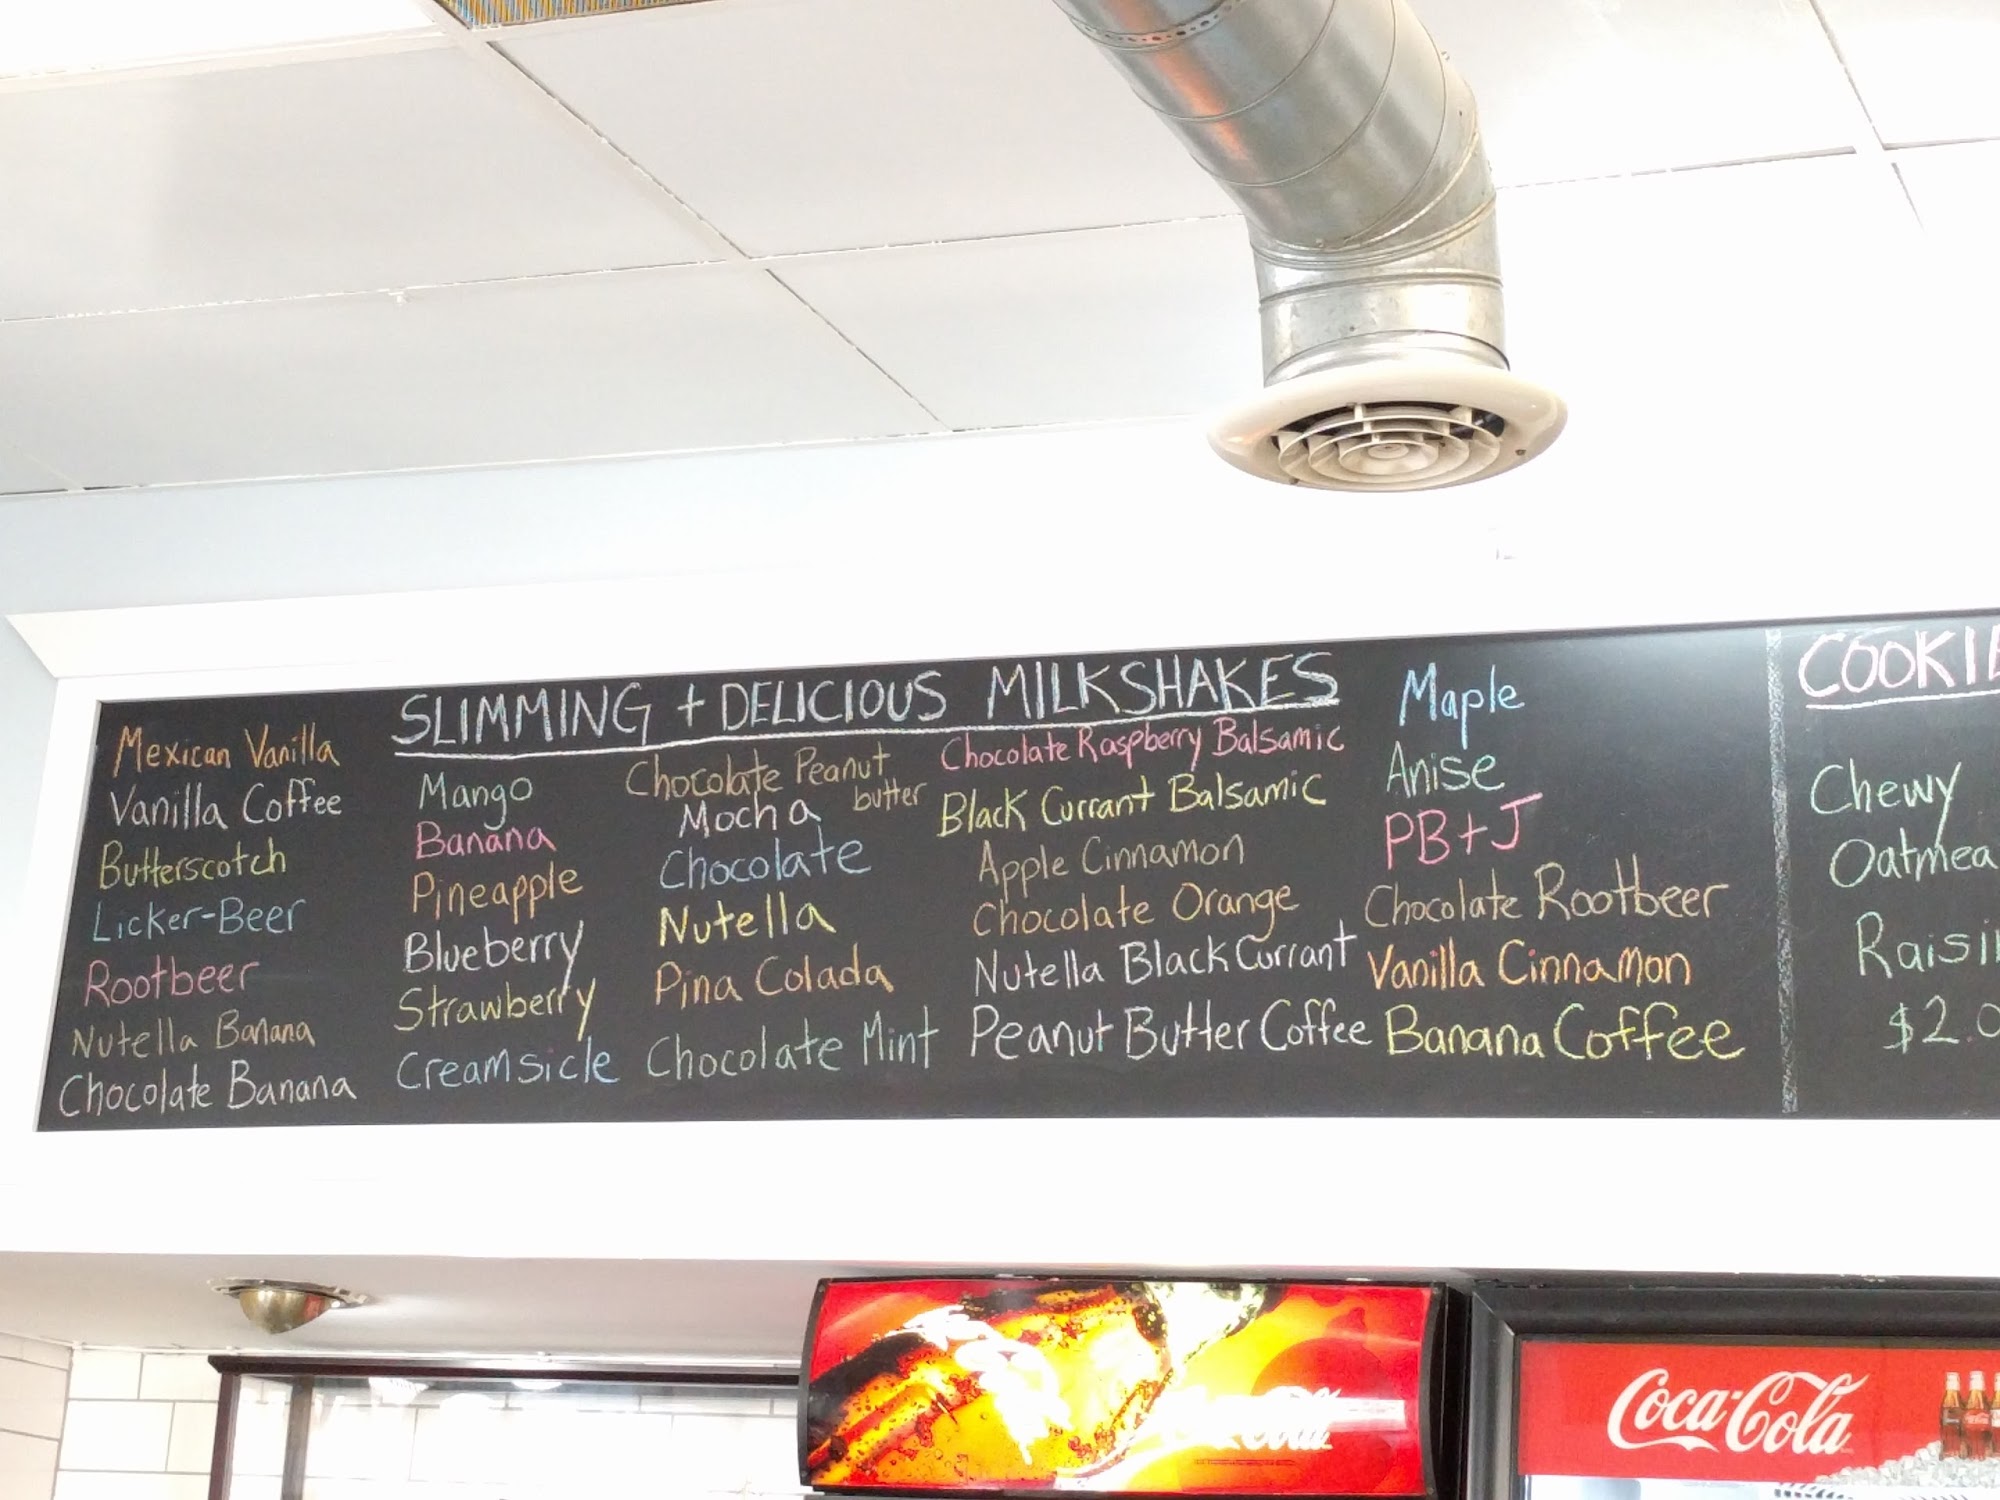 SLIMMING + DELICIOUS MILKSHAKES
Mexican Vanilla
Vanilla Coffee
Butterscotch
Licker-Beer
Rootbeer
Nutella Banana
Chocolate Banana
Mango
Banana
Pineapple
Blueberry
Strawberry
Creamsicle
Chocolate Peanut
butter
Mocha
Chocolate
Nutella
Pina Colada
Chocolate Mint
Chocolate Raspberry Balsamic
Black Currant Balsamic
Apple Cinnamon
Chocolate Orange
Nutella Black Currant
Peanut Butter Coffee
Maple
Anise
PB+J
Chocolate Rootbeer
Vanilla Cinnamon
Banana Coffee
COOKIE
Chewy
Oatmea
Raisi
$2.0
Coca-Cola